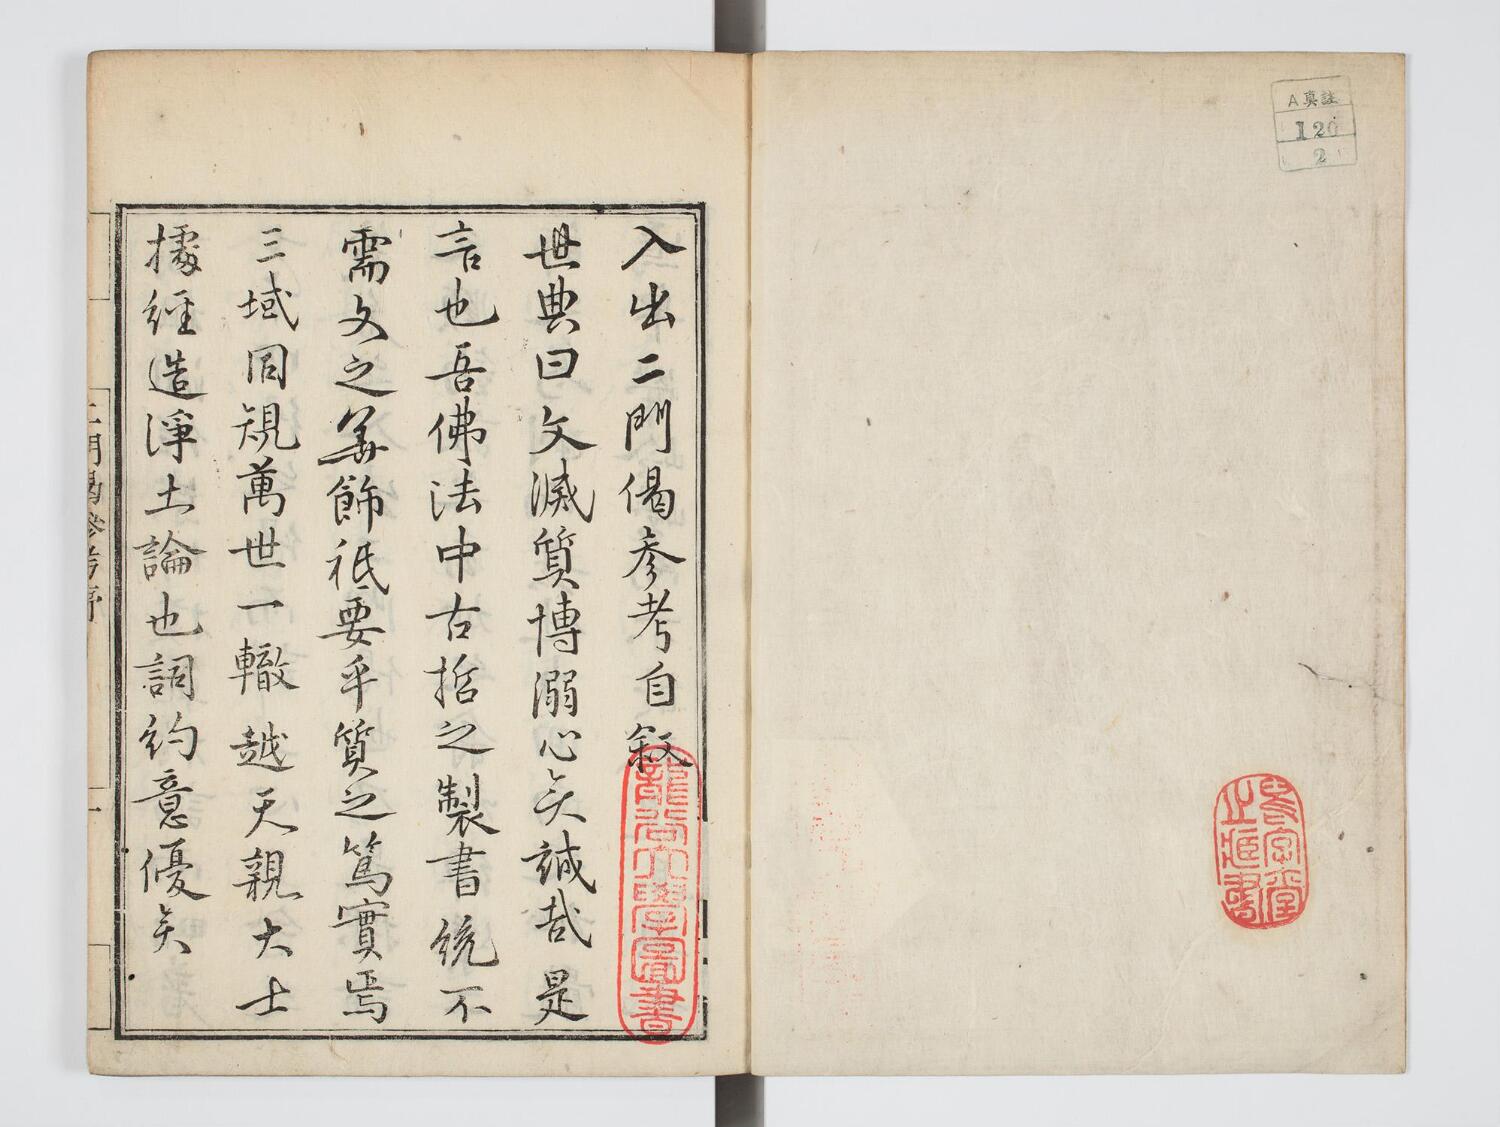 A眞註
120
2
入出二門偈参考自叙
世典曰文滅質博溺心矣誠哉是
言也吾佛法中古哲之製書統不
需文之美飾祗要乎質之篤實焉
三域同規萬世一轍越天親大士
據經造淨土論也詞約意優矣
龍谷大學圖書
二門偈參考序
一